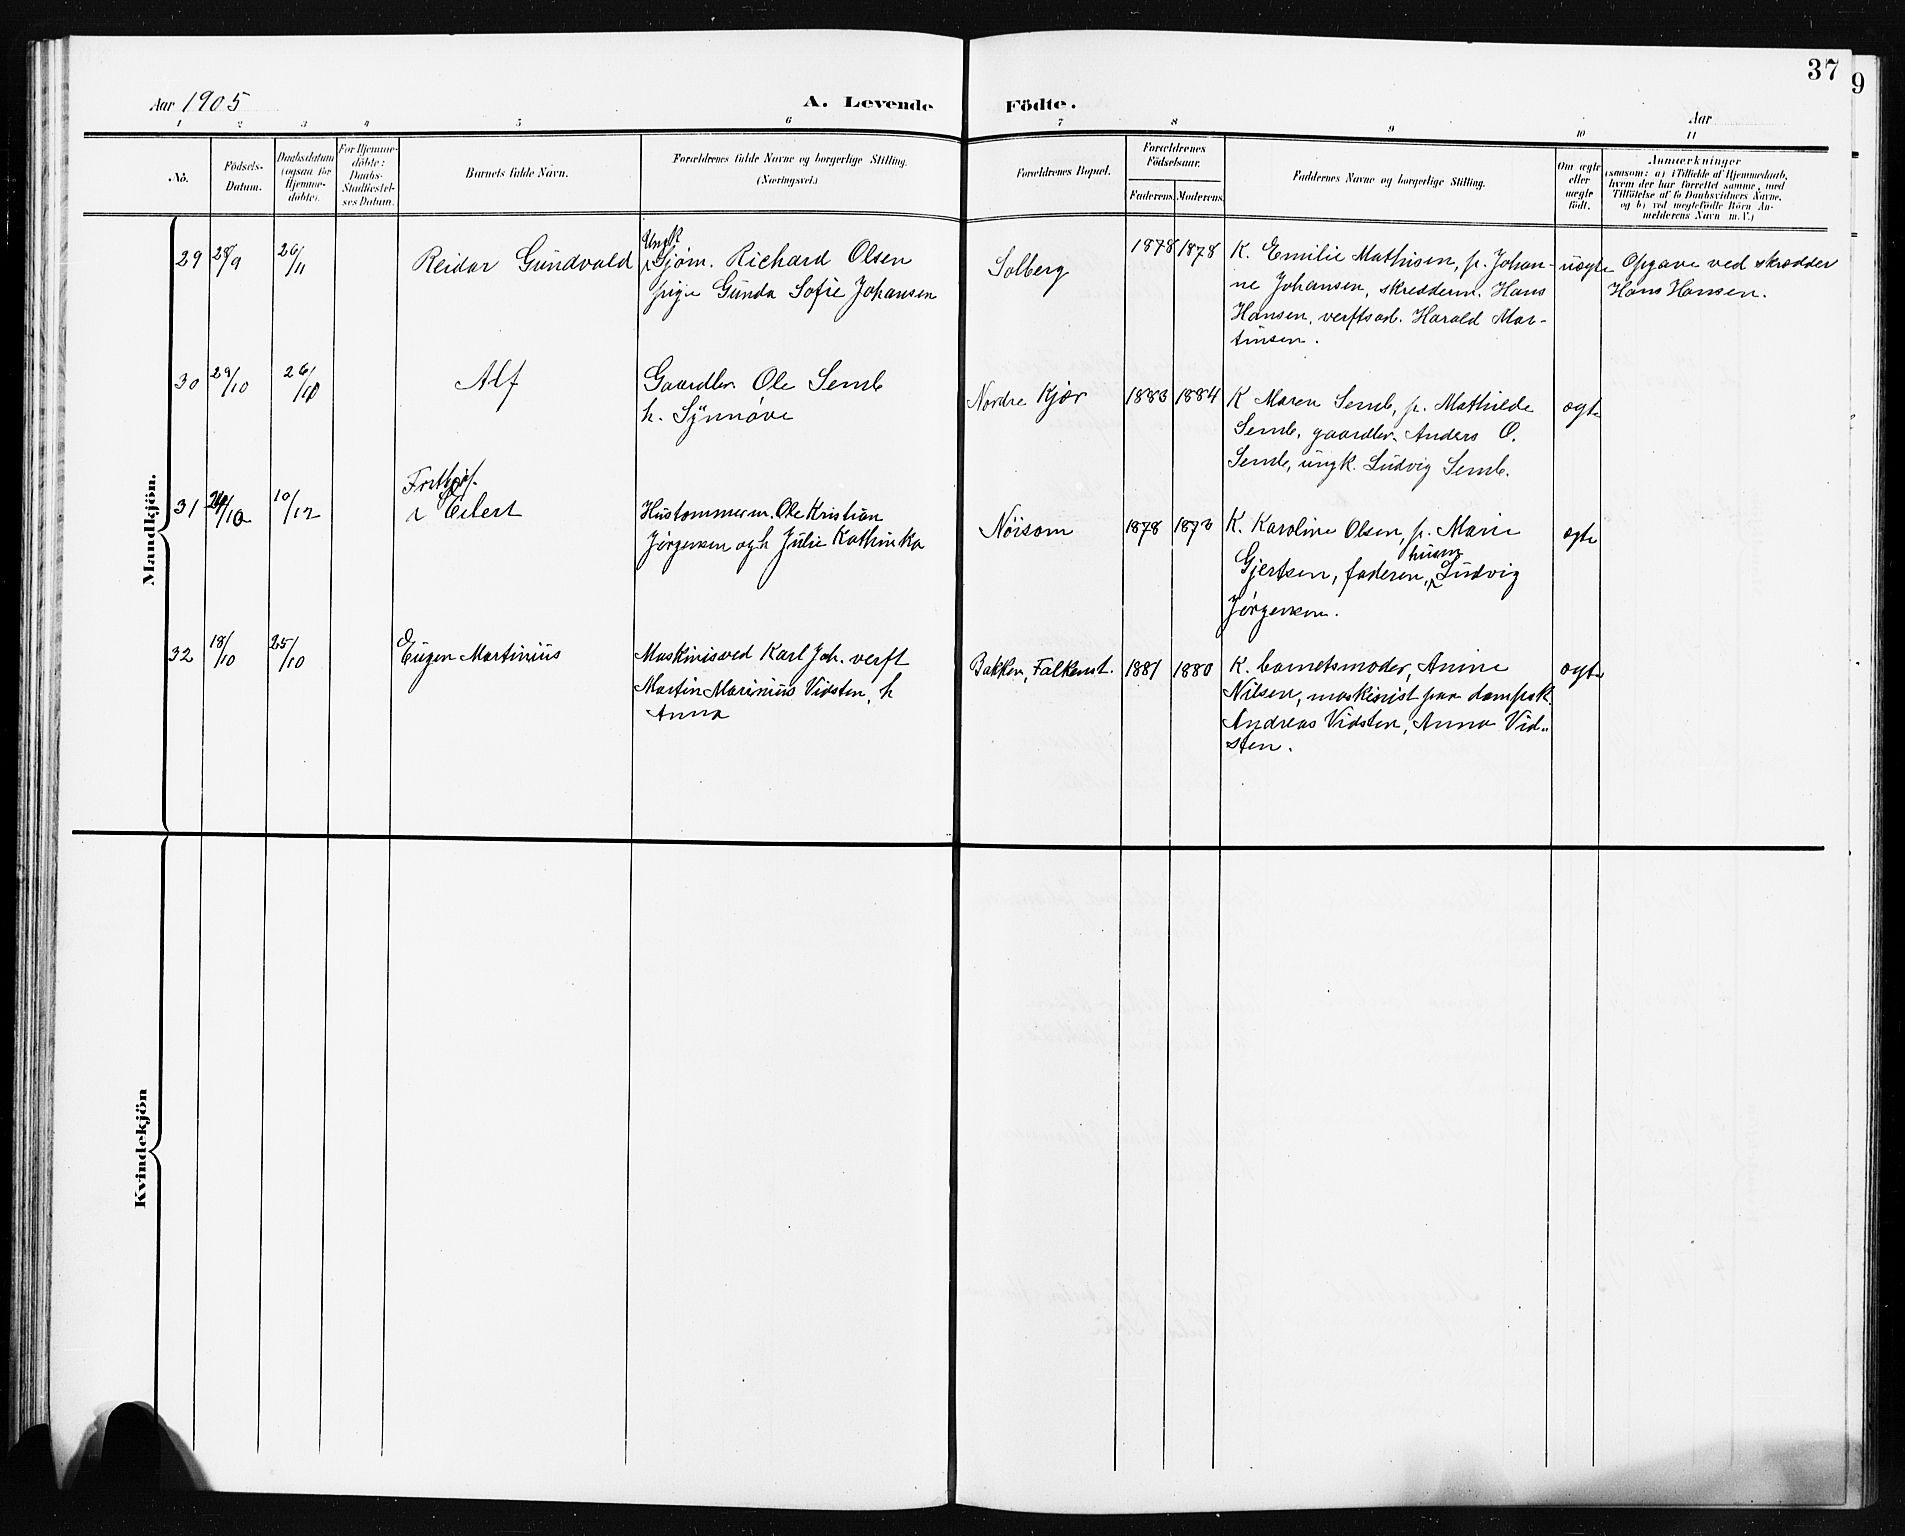 37
9
Aar 1905
A. Levende
Födte.
Aar
1 2 3 4 5 6 7 8 9 10 11
No.
Födsels-
Datum.
Daabsdatum
(ogsaa for
Hjemme-
døbte).
For Hjemme-
døbte:
Daabs-
Stadfæstel-
ses Datum.
Barnets fulde Navn.
Forældrenes fulde Navne og borgerlige Stilling.
(Næringsvei.)
Forældrenes Bopæl.
Forældrenes
Fødselsaar.
Faderens. Moderens.
Faddernes Navne og borgerlige Stilling.
Om ægte
eller
uægte
født.
Anmærkninger
(saasom: a) i Tilfælde af Hjemmedaab,
hvem der har forrettet samme, med
Tilføielse af to Daabsvidners Navne,
og b) ved uægtefødte Börn An-
melderens Navn m. V.)
Mandkjön.
29 28/9 26/11 Reidar Gundvald
Ungk
Sjøm. Richard Olsen
pige Gunda Sofie Johansen
Solberg
1878 1878
K. Emilie Mathisen, p. Johan-
ne Johansen, skrædderm. Hans
Hansen, verftsarb. Harald Mar-
tinsen.
uægte
Opgave ved skrædder
Hans Hansen.
30 29/10 26/10 Alf
Gaardbr. Ole Semb
h. Synnøve
Nordre Kjær
1883 1884
K Maren Semb, p. Mathilde
Semb, gaardbr. Anders O.
Semb, ungk. Ludvig Semb.
ægte
31 10/12
Eilert
Hustømmerm. Ole Kristian
Jørgensen og h Julie Kathinka
Nøisom
1878 1873
K. Karoline Olsen, p. Marie
Gjertsen, faderen, Ludvig
Jørgensen.
ægte
32 18/10 25/10 Eugen Martinius
Maskinis ved Karl Joh. verft
Martin Marinius Vidsten, h
Anna
Bakken, Falkenst.
1881 1880
K. barnetsmoder, Anine
Nilsen, maskinist paa dampsk.
Andreas Vidsten, Anna Vid-
sten.
ægte
Kvindekjön